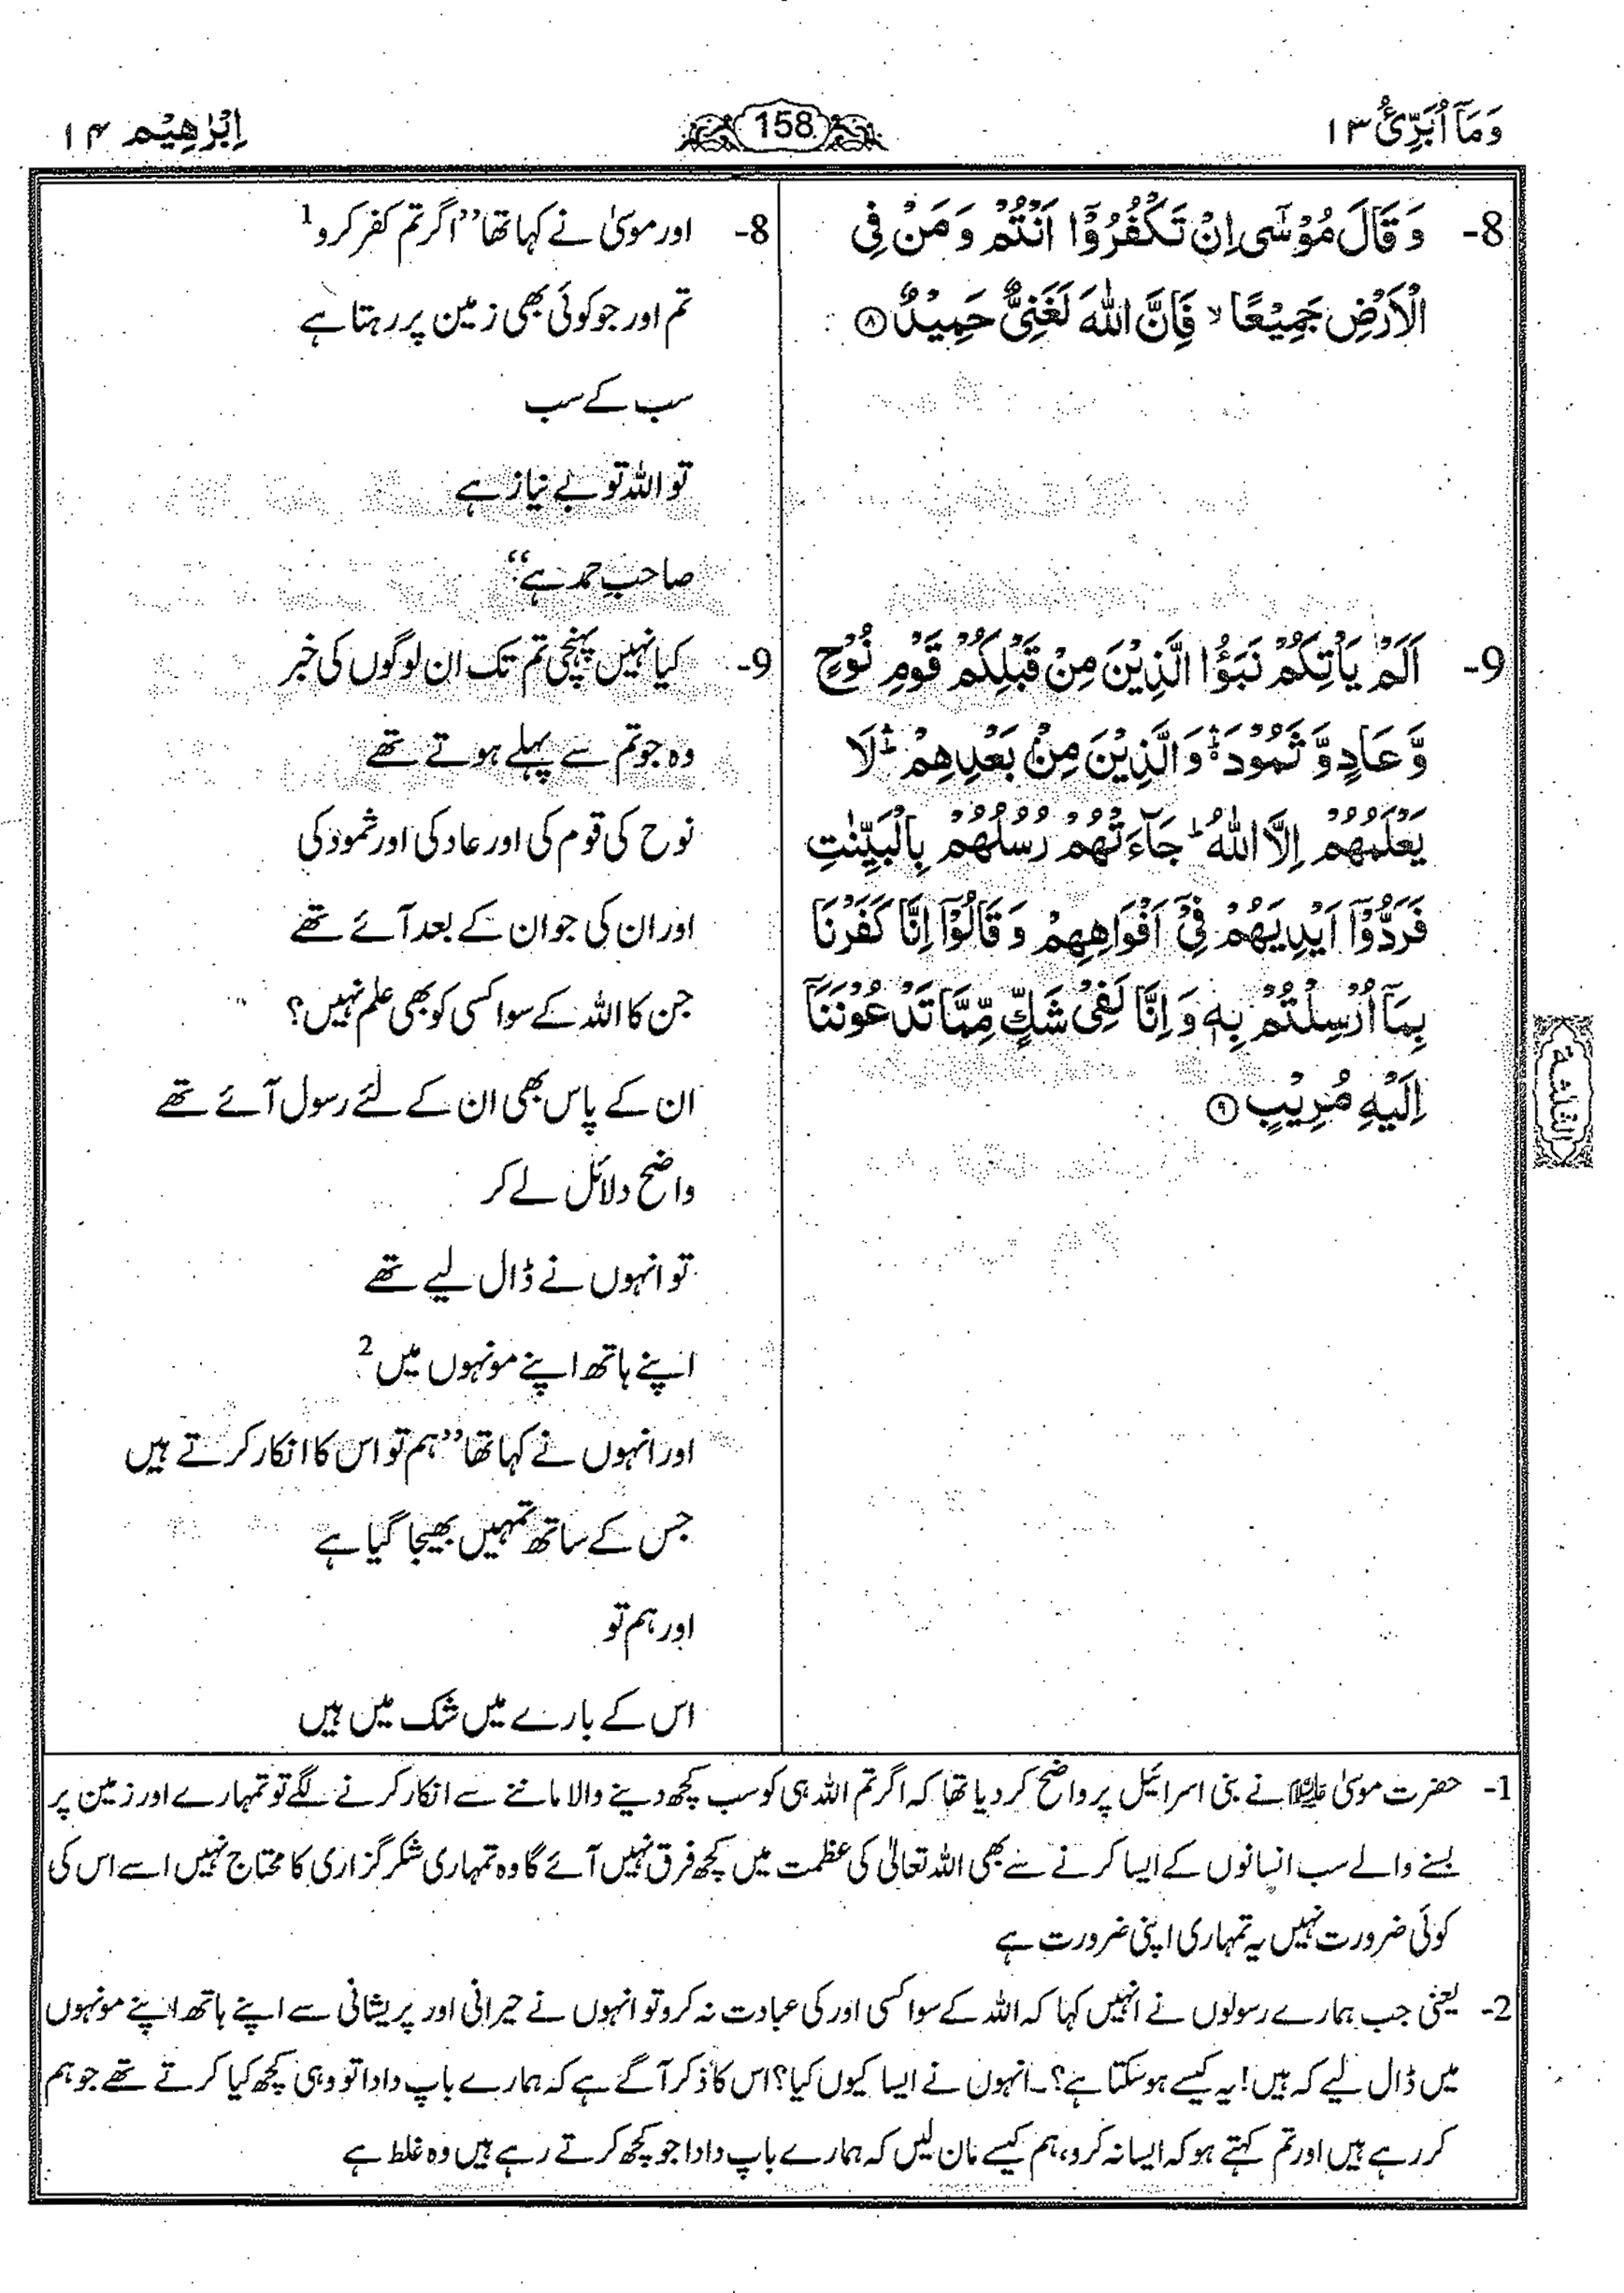 وَمَآ اُبَرِّئُ ١٣
158
اِبْرٰهِيْم ١٤
8- وَ قَالَ مُوْسٰٓى اِنْ تَكْفُرُوْٓا اَنْتُمْ وَ مَنْ فِى
الْاَرْضِ جَمِيْعًا ۙ فَاِنَّ اللّٰهَ لَغَنِىٌّ حَمِيْدٌ ۝٨
9- اَلَمْ يَاْتِكُمْ نَبَؤُا الَّذِيْنَ مِنْ قَبْلِكُمْ قَوْمِ نُوْحٍ
وَّ عَادٍ وَّ ثَمُوْدَ ۛؕ وَ الَّذِيْنَ مِنْۢ بَعْدِهِمْ ۛؕ لَا
يَعْلَمُهُمْ اِلَّا اللّٰهُ ؕ جَآءَتْهُمْ رُسُلُهُمْ بِالْبَيِّنٰتِ
فَرَدُّوْٓا اَيْدِيَهُمْ فِىْٓ اَفْوَاهِهِمْ وَ قَالُوْٓا اِنَّا كَفَرْنَا
بِمَآ اُرْسِلْتُمْ بِهٖ وَ اِنَّا لَفِىْ شَكٍّ مِّمَّا تَدْعُوْنَنَآ
اِلَيْهِ مُرِيْبٍ ۝٩
8- اور موسیٰ نے کہا تھا ’’اگر تم کفر کرو1
تم اور جو کوئی بھی زمین پر رہتا ہے
سب کے سب
تو اللہ تو بے نیاز ہے
صاحبِ حمد ہے‘‘
9- کیا نہیں پہنچی تم تک ان لوگوں کی خبر
وہ جو تم سے پہلے ہوتے تھے
نوح کی قوم کی اور عاد کی اور ثمود کی
اور ان کی جو ان کے بعد آئے تھے
جن کا اللہ کے سوا کسی کو بھی علم نہیں؟
ان کے پاس بھی ان کے لئے رسول آئے تھے
واضح دلائل لے کر
تو انہوں نے ڈال لیے تھے
اپنے ہاتھ اپنے مونہوں میں2
اور انہوں نے کہا تھا ’’ہم تو اس کا انکار کرتے ہیں
جس کے ساتھ تمہیں بھیجا گیا ہے
اور ہم تو
اس کے بارے میں شک میں ہیں
الثلثة
1- حضرت موسیٰ علیہ السلام نے بنی اسرائیل پر واضح کر دیا تھا کہ اگر تم اللہ ہی کو سب کچھ دینے والا ماننے سے انکار کرنے لگے تو تمہارے اور زمین پر
بسنے والے سب انسانوں کے ایسا کرنے سے بھی اللہ تعالیٰ کی عظمت میں کچھ فرق نہیں آئے گا وہ تمہاری شکر گزاری کا محتاج نہیں اسے اس کی
کوئی ضرورت نہیں یہ تمہاری اپنی ضرورت ہے
2- یعنی جب ہمارے رسولوں نے انہیں کہا کہ اللہ کے سوا کسی اور کی عبادت نہ کرو تو انہوں نے حیرانی اور پریشانی سے اپنے ہاتھ اپنے مونہوں
میں ڈال لیے کہ ہیں! یہ کیسے ہو سکتا ہے؟ ۔ انہوں نے ایسا کیوں کیا؟ اس کا ذکر آگے ہے کہ ہمارے باپ دادا تو وہی کچھ کیا کرتے تھے جو ہم
کر رہے ہیں اور تم کہتے ہو کہ ایسا نہ کرو، ہم کیسے مان لیں کہ ہمارے باپ دادا جو کچھ کرتے رہے ہیں وہ غلط ہے